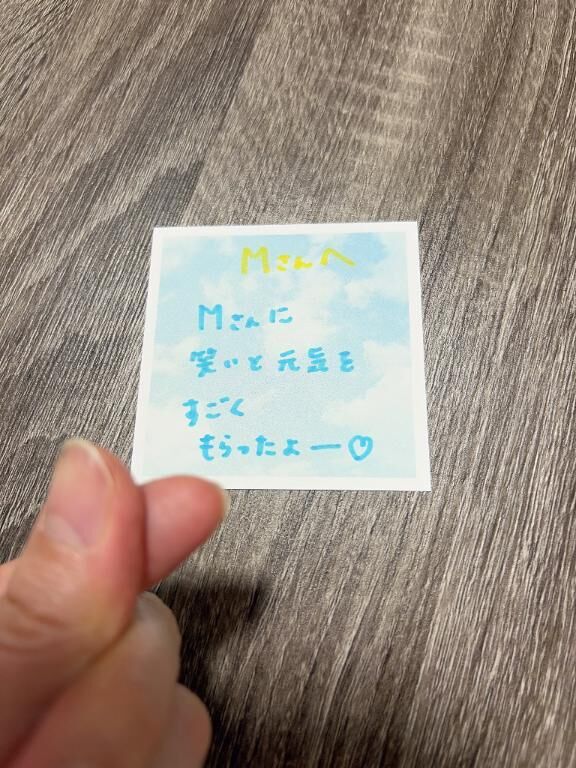 Mさんへ
Mさんに
笑いと元気を
すごく
もらったよー♡